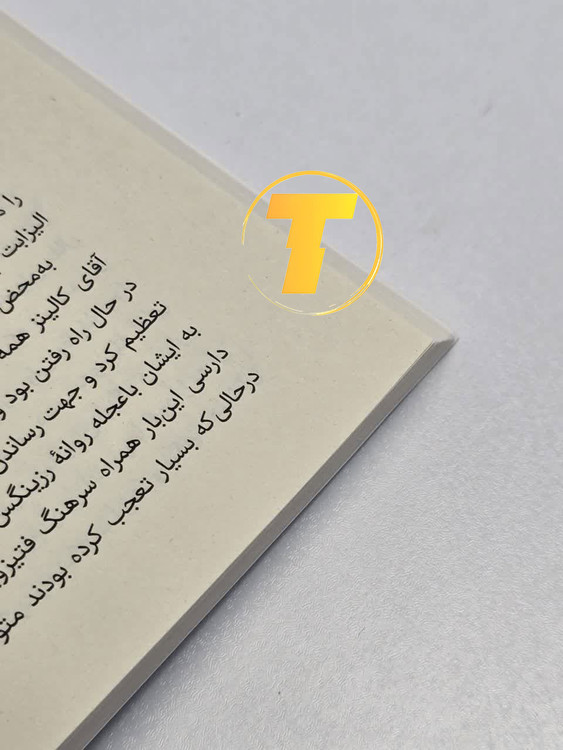 را
الیزابت
به‌محض
آقای کالینز همه
در حال راه رفتن بود و
تعظیم کرد و جهت رساندن
به ایشان باعجله روانهٔ رزینگس
دارسی این‌بار همراه سرهنگ
درحالی‌که بسیار تعجب کرده بودند
T